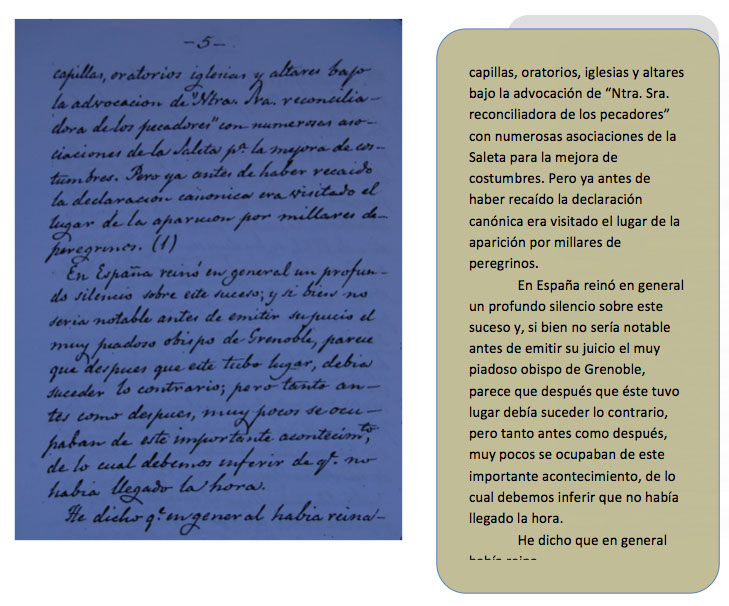 — 5 —
capillas, oratorios iglesias y altares bajo
la advocacion de "Ntra. Sra. reconcilia-
dora de los pecadores" con numerosas aso-
ciaciones de la Saleta pª. la mejora de cos-
tumbres. Pero ya antes de haber recaido
la declaracion canonica era visitado el
lugar de la aparicion por millares de
peregrinos. (1)
En España reinó en general un profun-
do silencio sobre este suceso; y si bien no
seria notable antes de emitir su juicio el
muy piadoso obispo de Grenoble, parece
que despues que este tubo lugar, debia
suceder lo contrario; pero tanto an-
tes como despues, muy pocos se ocu-
paban de este importante acontecimto,
de lo cual debemos inferir de qe. no
habia llegado la hora.
He dicho qe. en general habia reina-
capillas, oratorios, iglesias y altares
bajo la advocación de “Ntra. Sra.
reconciliadora de los pecadores”
con numerosas asociaciones de la
Saleta para la mejora de
costumbres. Pero ya antes de
haber recaído la declaración
canónica era visitado el lugar de la
aparición por millares de
peregrinos.
En España reinó en general
un profundo silencio sobre este
suceso y, si bien no sería notable
antes de emitir su juicio el muy
piadoso obispo de Grenoble,
parece que después que éste tuvo
lugar debía suceder lo contrario,
pero tanto antes como después,
muy pocos se ocupaban de este
importante acontecimiento, de lo
cual debemos inferir que no había
llegado la hora.
He dicho que en general
había reina